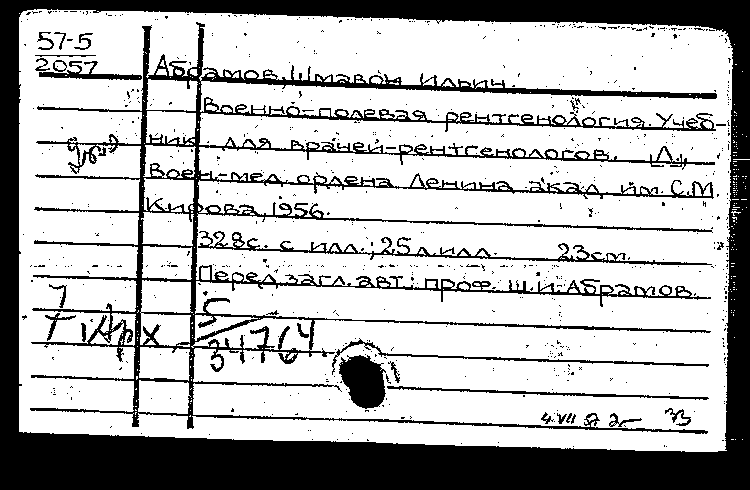 57-5
2057
Абрамов, Шмавон Ильич.
Военно-полевая рентгенология. Учеб-
ник для врачей-рентгенологов. Л.,
Воен.-мед. ордена Ленина акад. им. С.М.
Кирова, 1956.
328с. с илл.; 25 л. илл. 23см.
Перед загл. авт.: проф. Ш.И. Абрамов.
7 1Арх. 5
34764.
4.VII